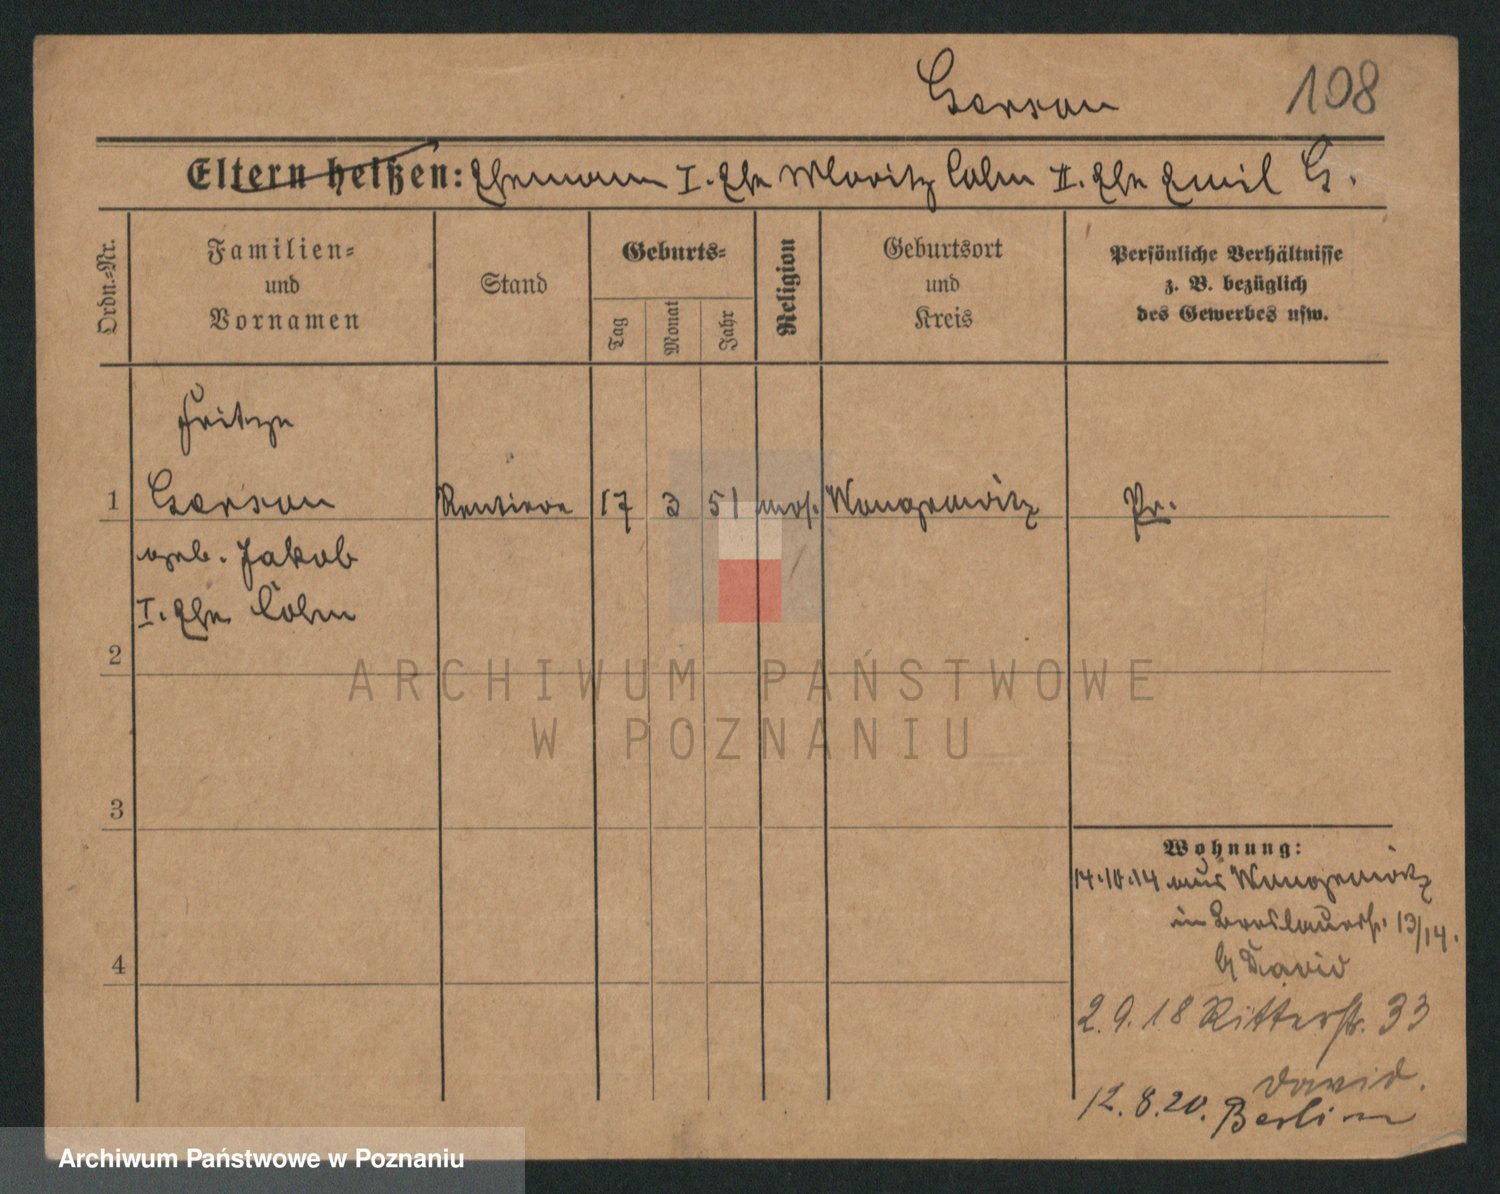 Gerson 108
Eltern heißen: Ehemann I. Ehe Moritz Cohn II. Ehe Emil G.
Ordn.-Nr.
Familien-
und
Vornamen
Stand
Geburts-
Tag
Monat
Jahr
Religion
Geburtsort
und
Kreis
Persönliche Verhältnisse
z. B. bezüglich
des Gewerbes usw.
Fritze
1 Gerson Rentiere 17 3 51 mos. Wongrowitz Pr.
geb. Jakob
I. Ehe Cohn
2
3
4
Wohnung:
14.10.14 aus Wongrowitz
in Breslauerstr. 13/14.
b David
2.9.18 Ritterstr. 33
David.
12.8.20. Berlin
ARCHIWUM PAŃSTWOWE
W POZNANIU
Archiwum Państwowe w Poznaniu